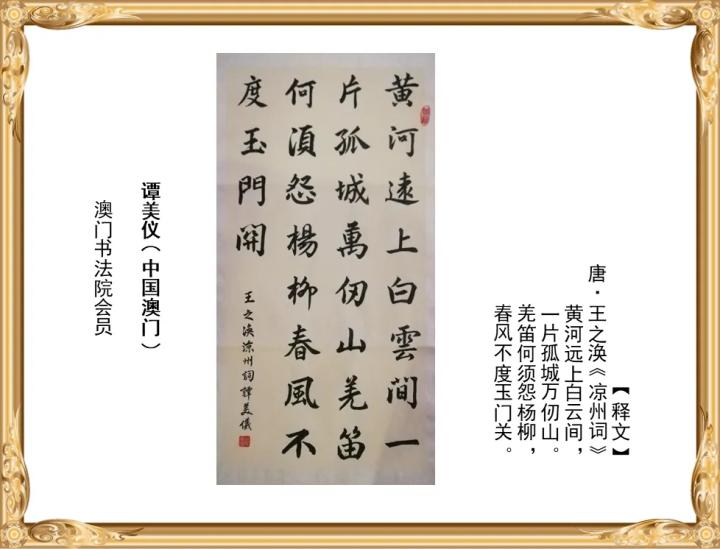 【释文】
唐·王之涣《凉州词》
黄河远上白云间，
一片孤城万仞山。
羌笛何须怨杨柳，
春风不度玉门关。
黄河遠上白雲間一
片孤城萬仞山羌笛
何湏怨楊柳春風不
度玉門開
王之渙涼州詞譚美儀
谭美仪（中国澳门）
澳门书法院会员